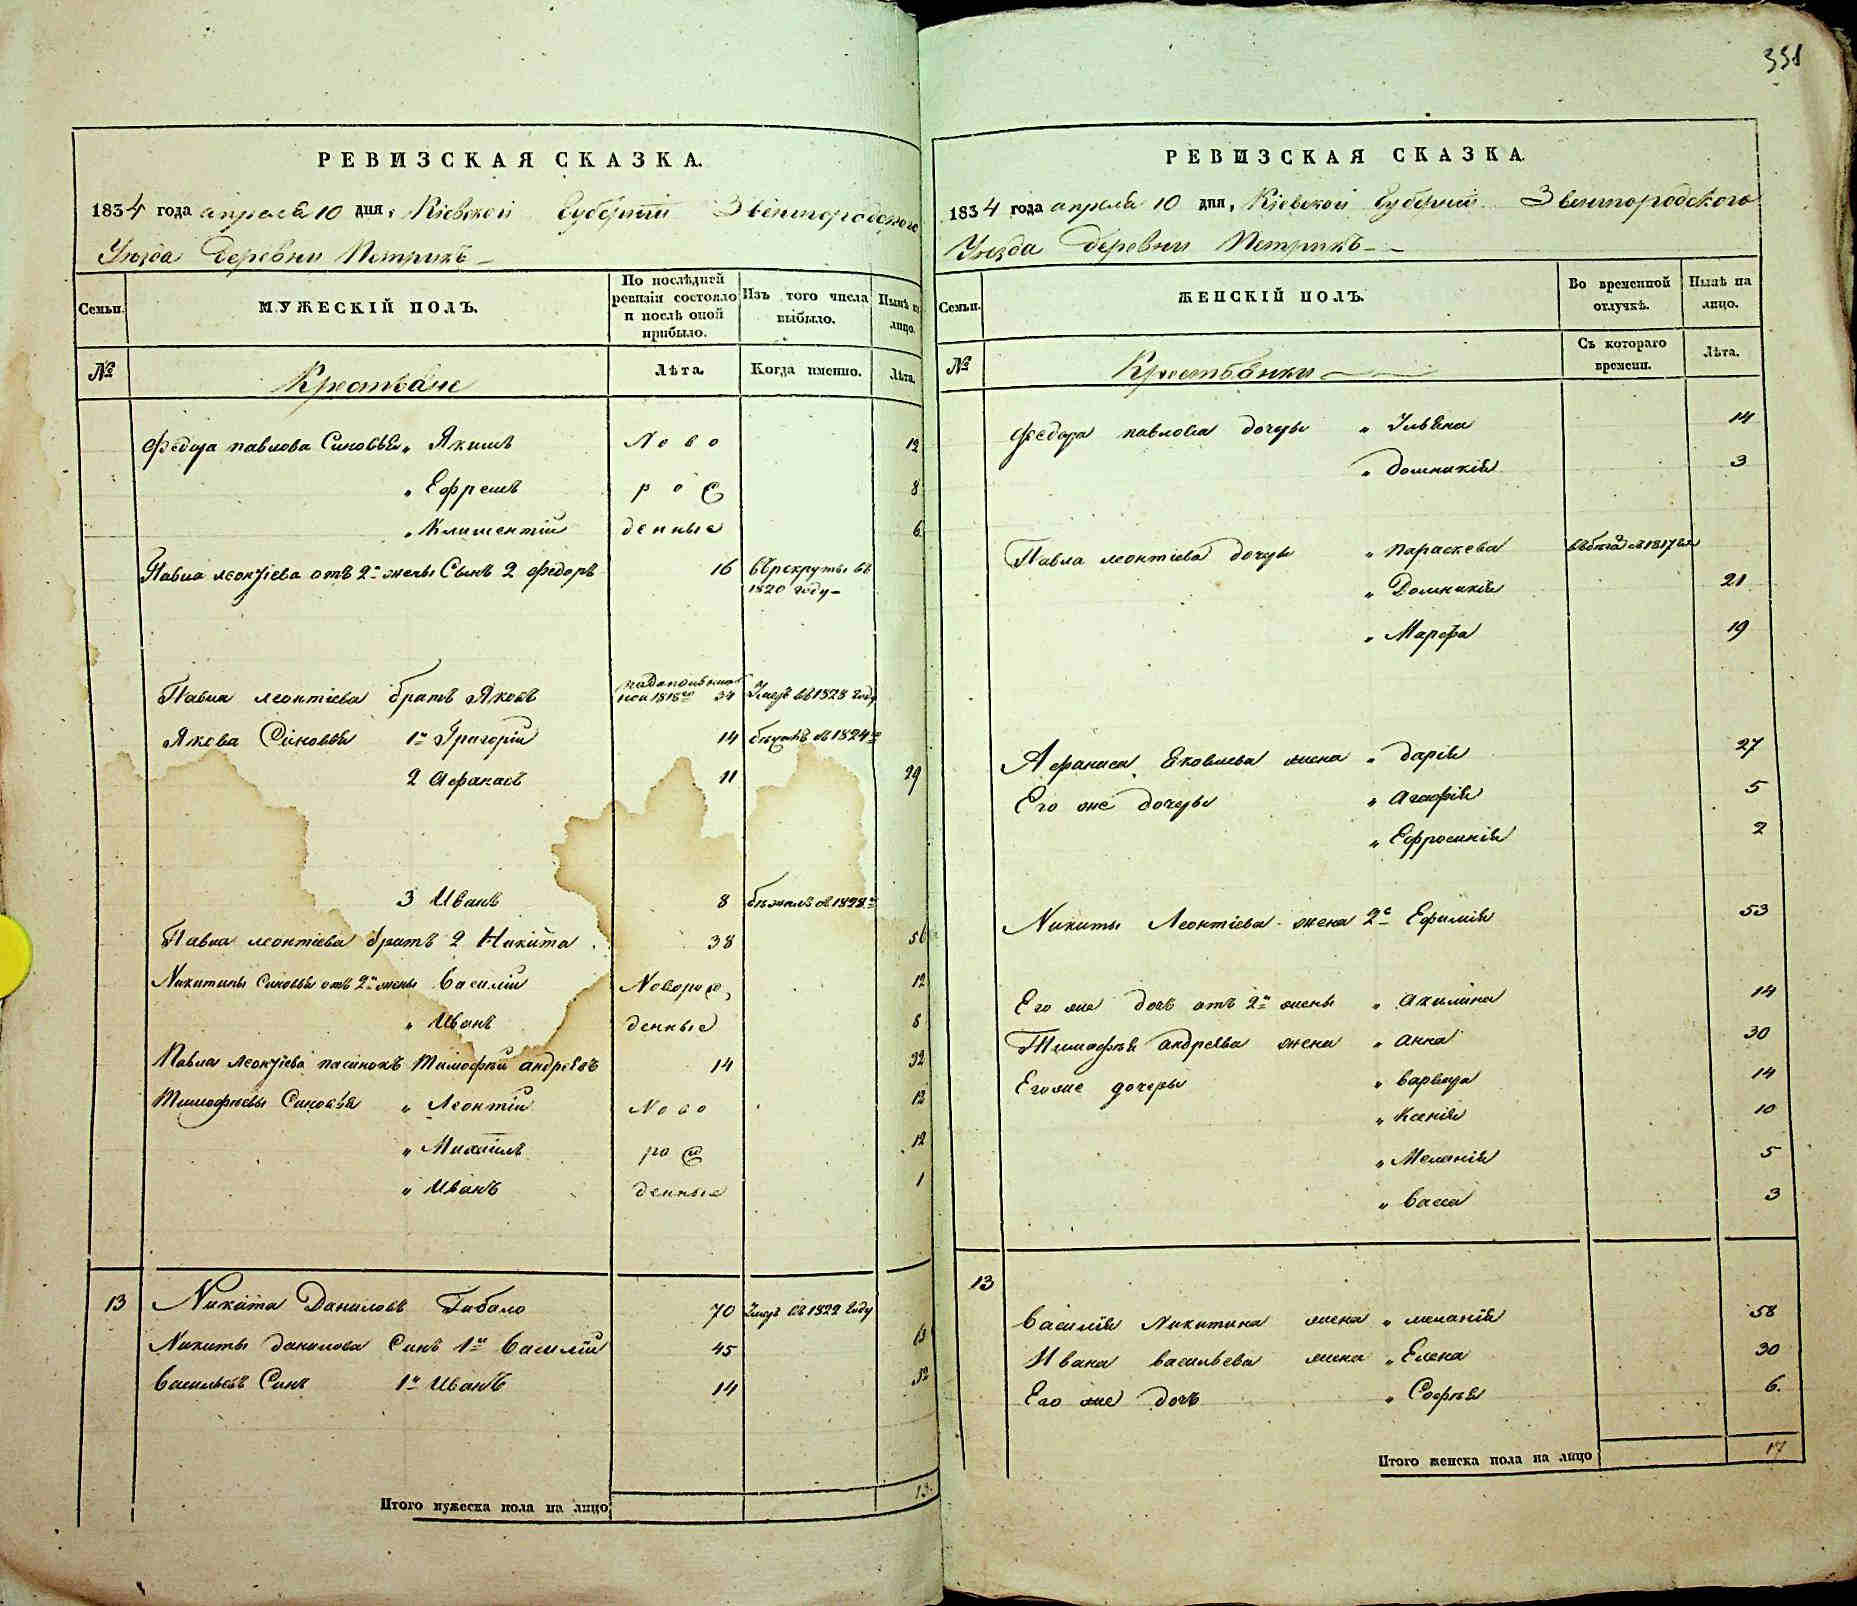 351
РЕВИЗСКАЯ СКАЗКА.
1834 года апреля 10 дня, Кіевской Губерніи Звенигородского
Уезда деревни Петрикъ
Семьи. МУЖЕСКІЙ ПОЛЪ. По послѣдней ревизіи состояло и послѣ оной прибыло. Изъ того числа выбыло. Нынѣ на лицо.
№ Крестьяне Лѣта. Когда именно. Лѣта.
Федора павлова Синовья " Якимъ Ново 12
" Ефремъ рож 8
" Климентій денные 6
Павла леонтіева отъ 2й жены Сынъ 2 Федоръ 16 въ рекруты въ
1820 году
Павла леонтіева братъ Яковъ 34 Умеръ въ 1828 году
Якова Синовья 1й Григорій 14 бежалъ въ 1824го
2 Афанасъ 11 29
3 Иванъ 8 бежалъ въ 1828го
Павла леонтіева братъ 2 Никита 38 56
Никитины Синовья отъ 2й жены Василій Новорож 12
" Иванъ денные 8
Павла Леонтіева пасинокъ Тимофѣй андреевъ 14 32
Тимофѣевы Синовья " Леонтій Ново 12
" Михаилъ рож 12
" Иванъ денные 1
13 Никита Даниловъ Габало 70 Умеръ въ 1822 году
Никиты данилова Синъ 1й Василій 45 63
Васильевъ Синъ 1й Иванъ 14 32
Итого мужеска пола на лицо 13.
РЕВИЗСКАЯ СКАЗКА.
1834 года апреля 10 дня, Кіевской Губерніи Звенигородского
Уезда деревни Петрикъ
Семьи. ЖЕНСКІЙ ПОЛЪ. Во временной отлучкѣ. Нынѣ на лицо.
№ Крестьянки Съ котораго времени. Лѣта.
Федора павлова дочеры " Ульяна 14
" Домникія 3
Павла леонтіева дочеры " параскева въ бегахъ съ 1817го
" Домникія 21
" Марфа 19
Афанаса Яковлева жена " дарія 27
Его же дочеры " агафія 5
" Ефросинія 2
Никиты Леонтіева жена 2я Ефимія 53
Его же дочъ отъ 2й жены " акилина 14
Тимофѣя андреева жена " анна 30
Его же дочеры " варвара 14
" Ксенія 10
" Меланія 5
" васса 3
13
Василія Никитина жена " меланія 58
Ивана васильева жена " Елена 30
Его же дочъ " Софія 6.
Итого женска пола на лицо 17